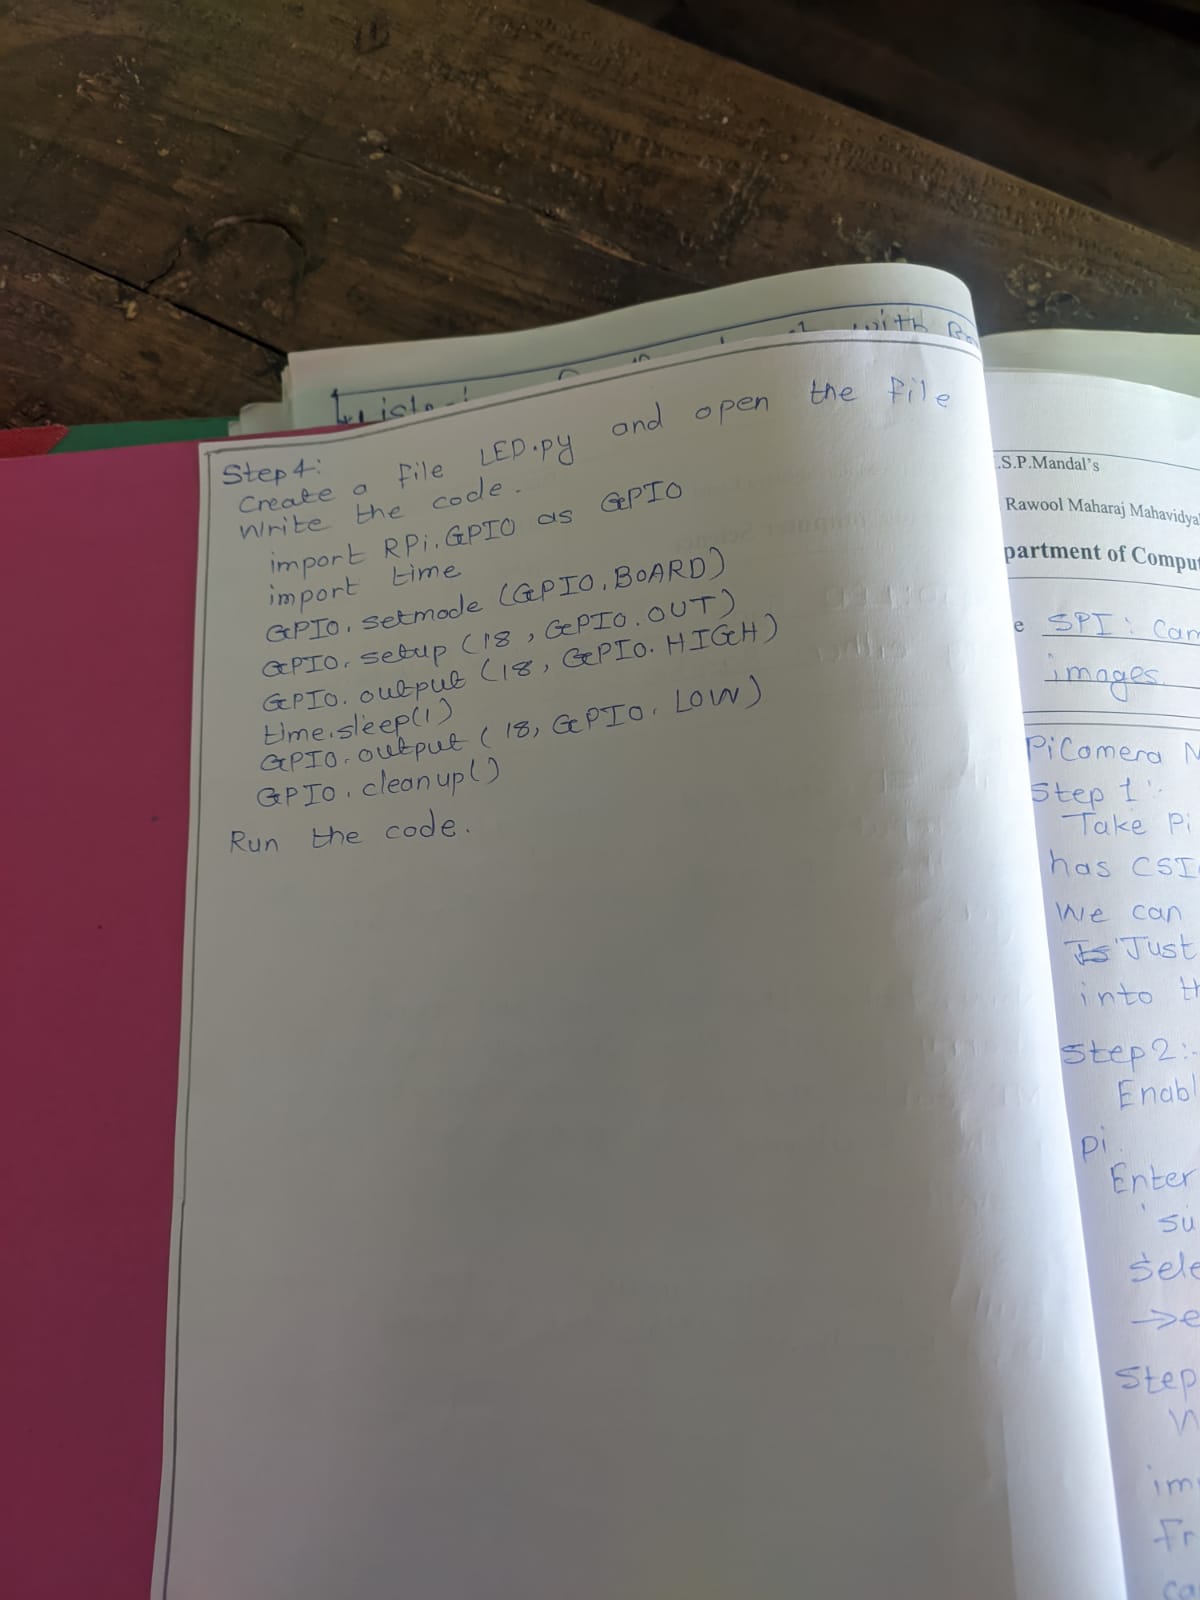 with
Step 4:
Create a file LED.py and open the file
Write the code.
import RPi.GPIO as GPIO
import time
GPIO.setmode (GPIO.BOARD)
GPIO.setup (18, GPIO.OUT)
GPIO.output (18, GPIO.HIGH)
time.sleep(1)
GPIO.output (18, GPIO.LOW)
GPIO.cleanup()
Run the code.
.S.P.Mandal's
Rawool Maharaj
of
e SPI:
images.
PiCamera
Step 1:
Take Pi
has CSI
We can
Just
into
Step 2:-
pi.
Enter
Step